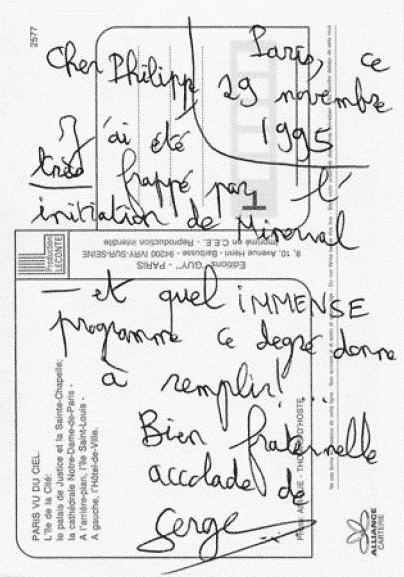 Paris, ce
29 novembre
1995
Cher Philipp
J'ai été
très frappé par l'
initiation de Minerval
— et quel IMMENSE
programme ce degré donne
à remplir!...
Bien fraternelle
accolade de
Serge
2577
Production
LECONTE
Editions "GUY" - PARIS
8, 10, Avenue Henri-Barbusse - 94200 IVRY-SUR-SEINE
Imprimé en C.E.E. - Reproduction interdite
PARIS VU DU CIEL.
L'Ile de la Cité:
le palais de Justice et la Sainte-Chapelle;
la cathédrale Notre-Dame-de-Paris -
A l'arrière-plan, l'Ile Saint-Louis -
A gauche, l'Hôtel-de-Ville.
D'HOSTE
ALLIANCE
CARTERIE